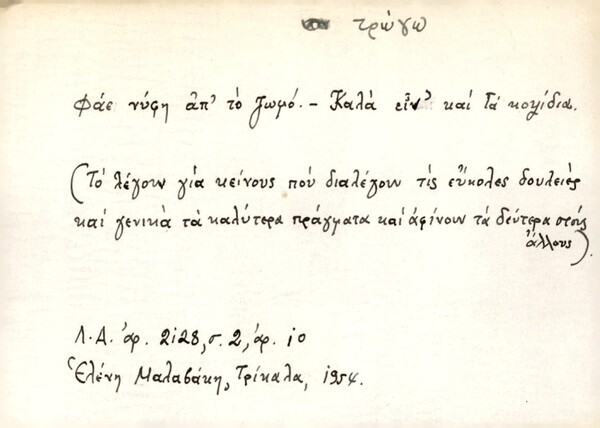 τρώγω
Φάε νύφη ἀπ' τὸ ζωμό. - Καλὰ εἶν' καὶ τὰ κοψίδια.
(Τὸ λέγουν γιὰ κείνους ποὺ διαλέγουν τὶς εὔκολες δουλειὲς
καὶ γενικὰ τὰ καλύτερα πράγματα καὶ ἀφίνουν τὰ δεύτερα στοὺς
ἄλλους).
Λ.Α. ἀρ. 2128, σ. 2, ἀρ. 10
Ἑλένη Μαλαβάκη, Τρίκαλα, 1954.